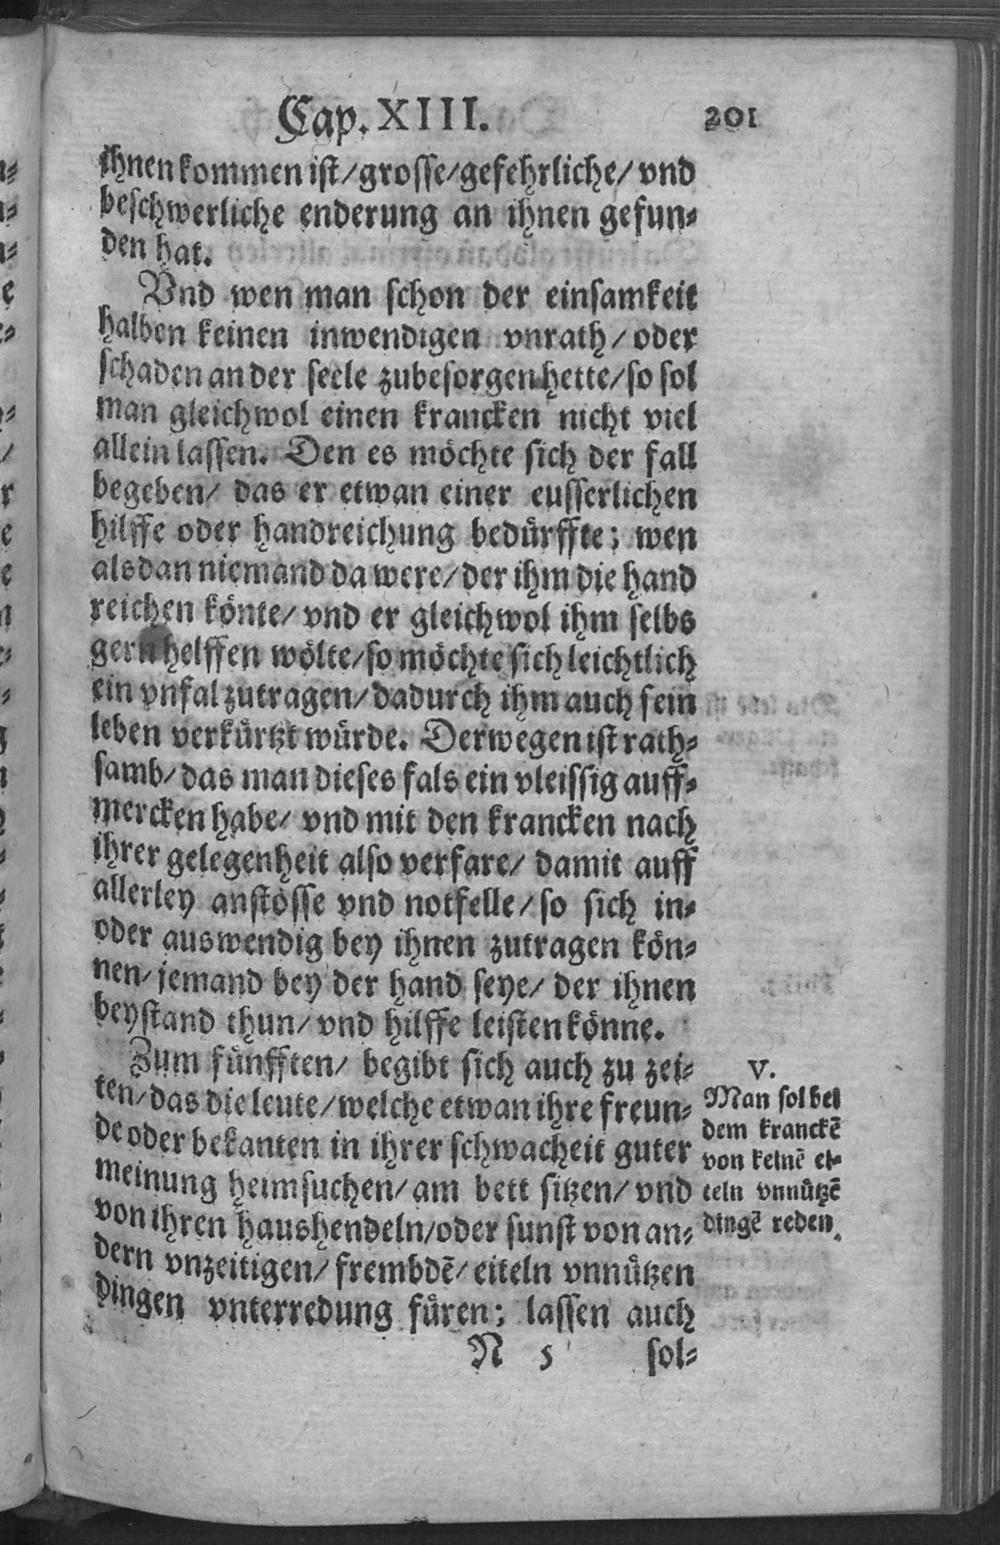 Cap. XIII. 201
ihnen kommen ist/grosse/gefehrliche/ vnd
beschwerliche enderung an ihnen gefun⸗
den hat.
Vnd wen man schon der einsamkeit
halben keinen inwendigen vnrath/ oder
schaden an der seele zubesorgen hette/so sol
man gleichwol einen krancken nicht viel
allein lassen. Den es möchte sich der fall
begeben/ das er etwan einer eusserlichen
hilffe oder handreichung bedürffte; wen
alsdan niemand da were/der ihm die hand
reichen könte/ vnd er gleichwol ihm selbs
gern helffen wölte/so möchte sich leichtlich
ein vnfal zutragen/dadurch ihm auch sein
leben verkürtzt würde. Derwegen ist rath⸗
samb/das man dieses fals ein vleissig auff⸗
mercken habe/ vnd mit den krancken nach
ihrer gelegenheit also verfare/ damit auff
allerley anstösse vnd notfelle/so sich in⸗
oder auswendig bey ihnen zutragen kön⸗
nen/jemand bey der hand seye/ der ihnen
beystand thun/ vnd hilffe leisten könne.
Zum fünfften/ begibt sich auch zu zei⸗
ten/das die leute/welche etwan ihre freun⸗
de oder bekanten in ihrer schwacheit guter
meinung heimsuchen/am bett sitzen/ vnd
von ihren haushendeln/oder sunst von an⸗
dern vnzeitigen/frembdē/eiteln vnnützen
dingen vnterredung füren; lassen auch
N 5 sol⸗
V.
Man sol bei
dem kranckē
von keinē ei⸗
teln vnnützē
dingē reden.